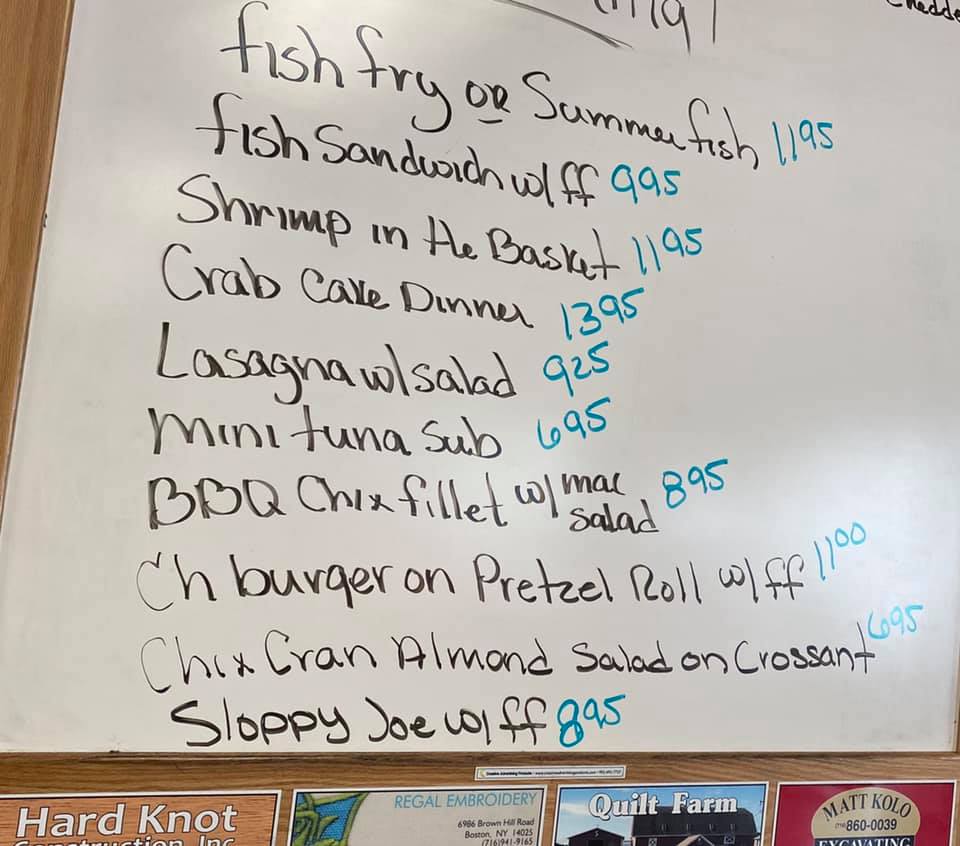 Chedde
fish fry or Summer fish 1195
fish Sandwich w/ ff 995
Shrimp in the Basket 1195
Crab Cake Dinner 1395
Lasagna w/ salad 925
mini tuna sub 695
BBQ Chix fillet w/ mac salad 895
Ch burger on Pretzel Roll w/ ff 1100
Chix Cran Almond Salad on Crossant 695
Sloppy Joe w/ ff 895
Hard Knot
Construction, Inc.
REGAL EMBROIDERY
6986 Brown Hill Road
Boston, NY 14025
(716)941-9165
Quilt Farm
MATT KOLO
(716) 860-0039
EXCAVATING